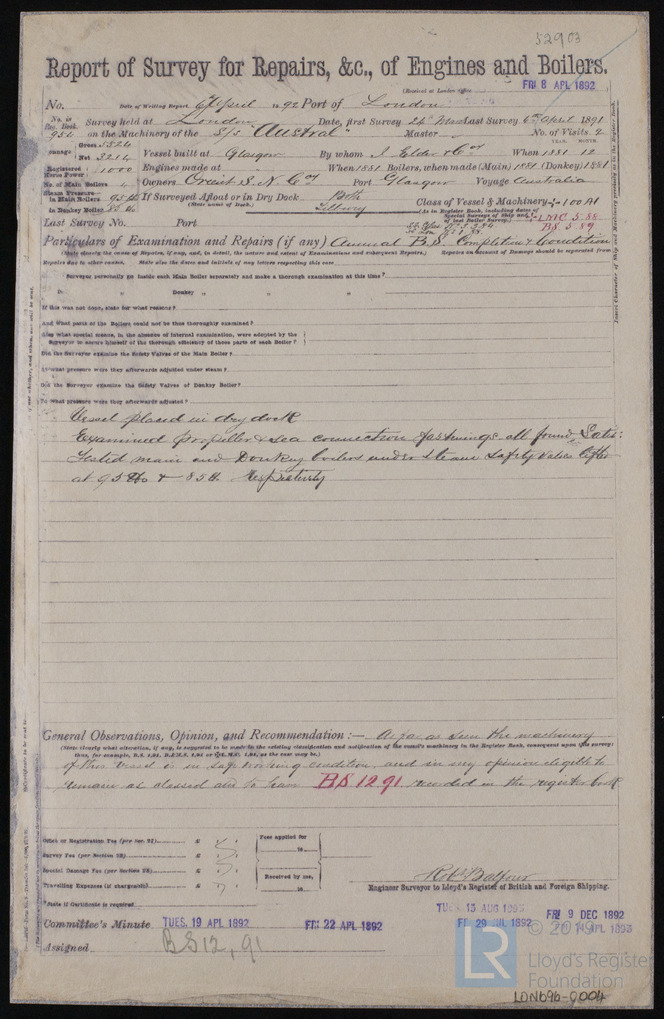 52903
Report of Survey for Repairs, &c., of Engines and Boilers.
(Received at London Office
FRI 8 APL 1892
No. Date of Writing Report 6th April 1892 Port of London
No. in Reg. Book. Survey held at London Date, first Survey Last Survey 6th April 1891
952 on the Machinery of the S/S "Austral" Master No. of Visits 2
Tonnage Gross 5524
Net 3214 Vessel built at Glasgow By whom J. Elder & Coy When 1881 12
Registered Horse Power 1000 Engines made at When 1881 Boilers, when made (Main) 1881 (Donkey) 1881
No. of Main Boilers Owners Orient S. N. Coy Port Glasgow Voyage Australia
Steam Pressure in Main Boilers 95 lb If Surveyed Afloat or in Dry Dock Both Class of Vessel & Machinery 100 A1
in Donkey Boiler 85 lb (State name of Dock.) Tilbury
+LMC 5.88
BS 5.89
Last Survey No. Port
Particulars of Examination and Repairs (if any) Annual B.S. Completion & Condition
Surveyor personally go inside each Main Boiler separately and make a thorough examination at this time?
Do. " Donkey " " "
If this was not done, state for what reasons?
And what parts of the Boilers could not be thus thoroughly examined?
Also what special means, in the absence of internal examination, were adopted by the Surveyor to assure himself of the thorough efficiency of those parts of each Boiler?
Did the Surveyor examine the Safety Valves of the Main Boiler?
At what pressure were they afterwards adjusted under steam?
Did the Surveyor examine the Safety Valves of Donkey Boiler?
To what pressure were they afterwards adjusted?
Vessel placed in dry dock
Examined propeller & sea connection fastenings all found Satis:
Tested main and Donkey boilers under steam Safety Valves lifted
at 95 lbs & 85 lb respectively
General Observations, Opinion, and Recommendation:— As far as seen the machinery
(State clearly what alteration, if any, is suggested to be made in the existing classification and notification of the vessel's machinery in the Register Book, consequent upon this survey:
thus, for example, B.S. 1,91, B.&M.S. 1,91 or L.M.C. 1,91, as the case may be.)
of this vessel is in safe working condition and in my opinion eligible to
remain as classed and to have BS 12 91 recorded in the register book
Office or Registration Fee (per Sec. 27) £
Survey Fee (per Section 28) £
Special Damage Fee (per Section 28) £
Travelling Expenses (if chargeable) £
Fees applied for
18
Received by me,
18
R. Balfour
Engineer Surveyor to Lloyd's Register of British and Foreign Shipping.
*State if Certificate is required
Committee's Minute TUES. 19 APL 1892 FRI 22 APL 1892
FRI 9 DEC 1892
FRI 29 JUL 1892
Assigned BS 12, 91
© 2019
Lloyd's Register
Foundation
LR
LDN696-0004